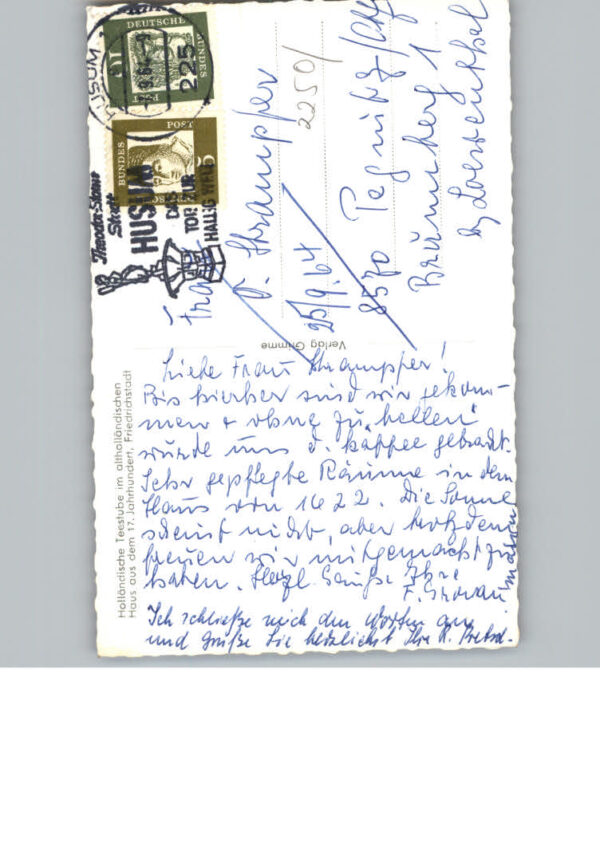 HUSUM
225
-9.64-9
DEUTSCHE
BUNDES
POST
10
BUNDES
POST
5
Theodor-Storm
Stadt
HUSUM
DAS
TOR ZUR
HALLIG WELT
2250/
Frau
25/9.64
8570 Pegnitz
1
Verlag Grimme
Holländische Teestube im altholländischen
Haus aus dem 17. Jahrhundert, Friedrichstadt
Liebe Frau
Bis hierher sind wir gekom-
men + ohne zu „
wurde uns d. Kaffee gebracht.
Sehr gepflegte Räume in dem
Haus von 1622. Die Sonne
scheint nicht, aber trotzdem
freuen wir mitgemacht zu
haben. Herzl. Grüße Ihre
F.
Ich schließe mich den Worten an
und grüße Sie herzlichst Ihre R.